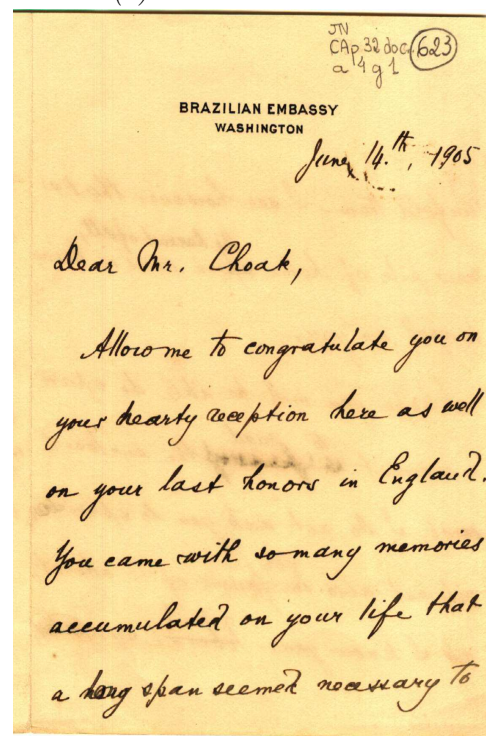 JN
CAp 32 doc. 623
a 4 g 1
BRAZILIAN EMBASSY
WASHINGTON
June, 14.th, 1905
Dear Mr. Choak,
Allow me to congratulate you on
your hearty reception here as well
on your last honors in England.
You came with so many memories
accumulated on your life that
a long span seemed necessary to